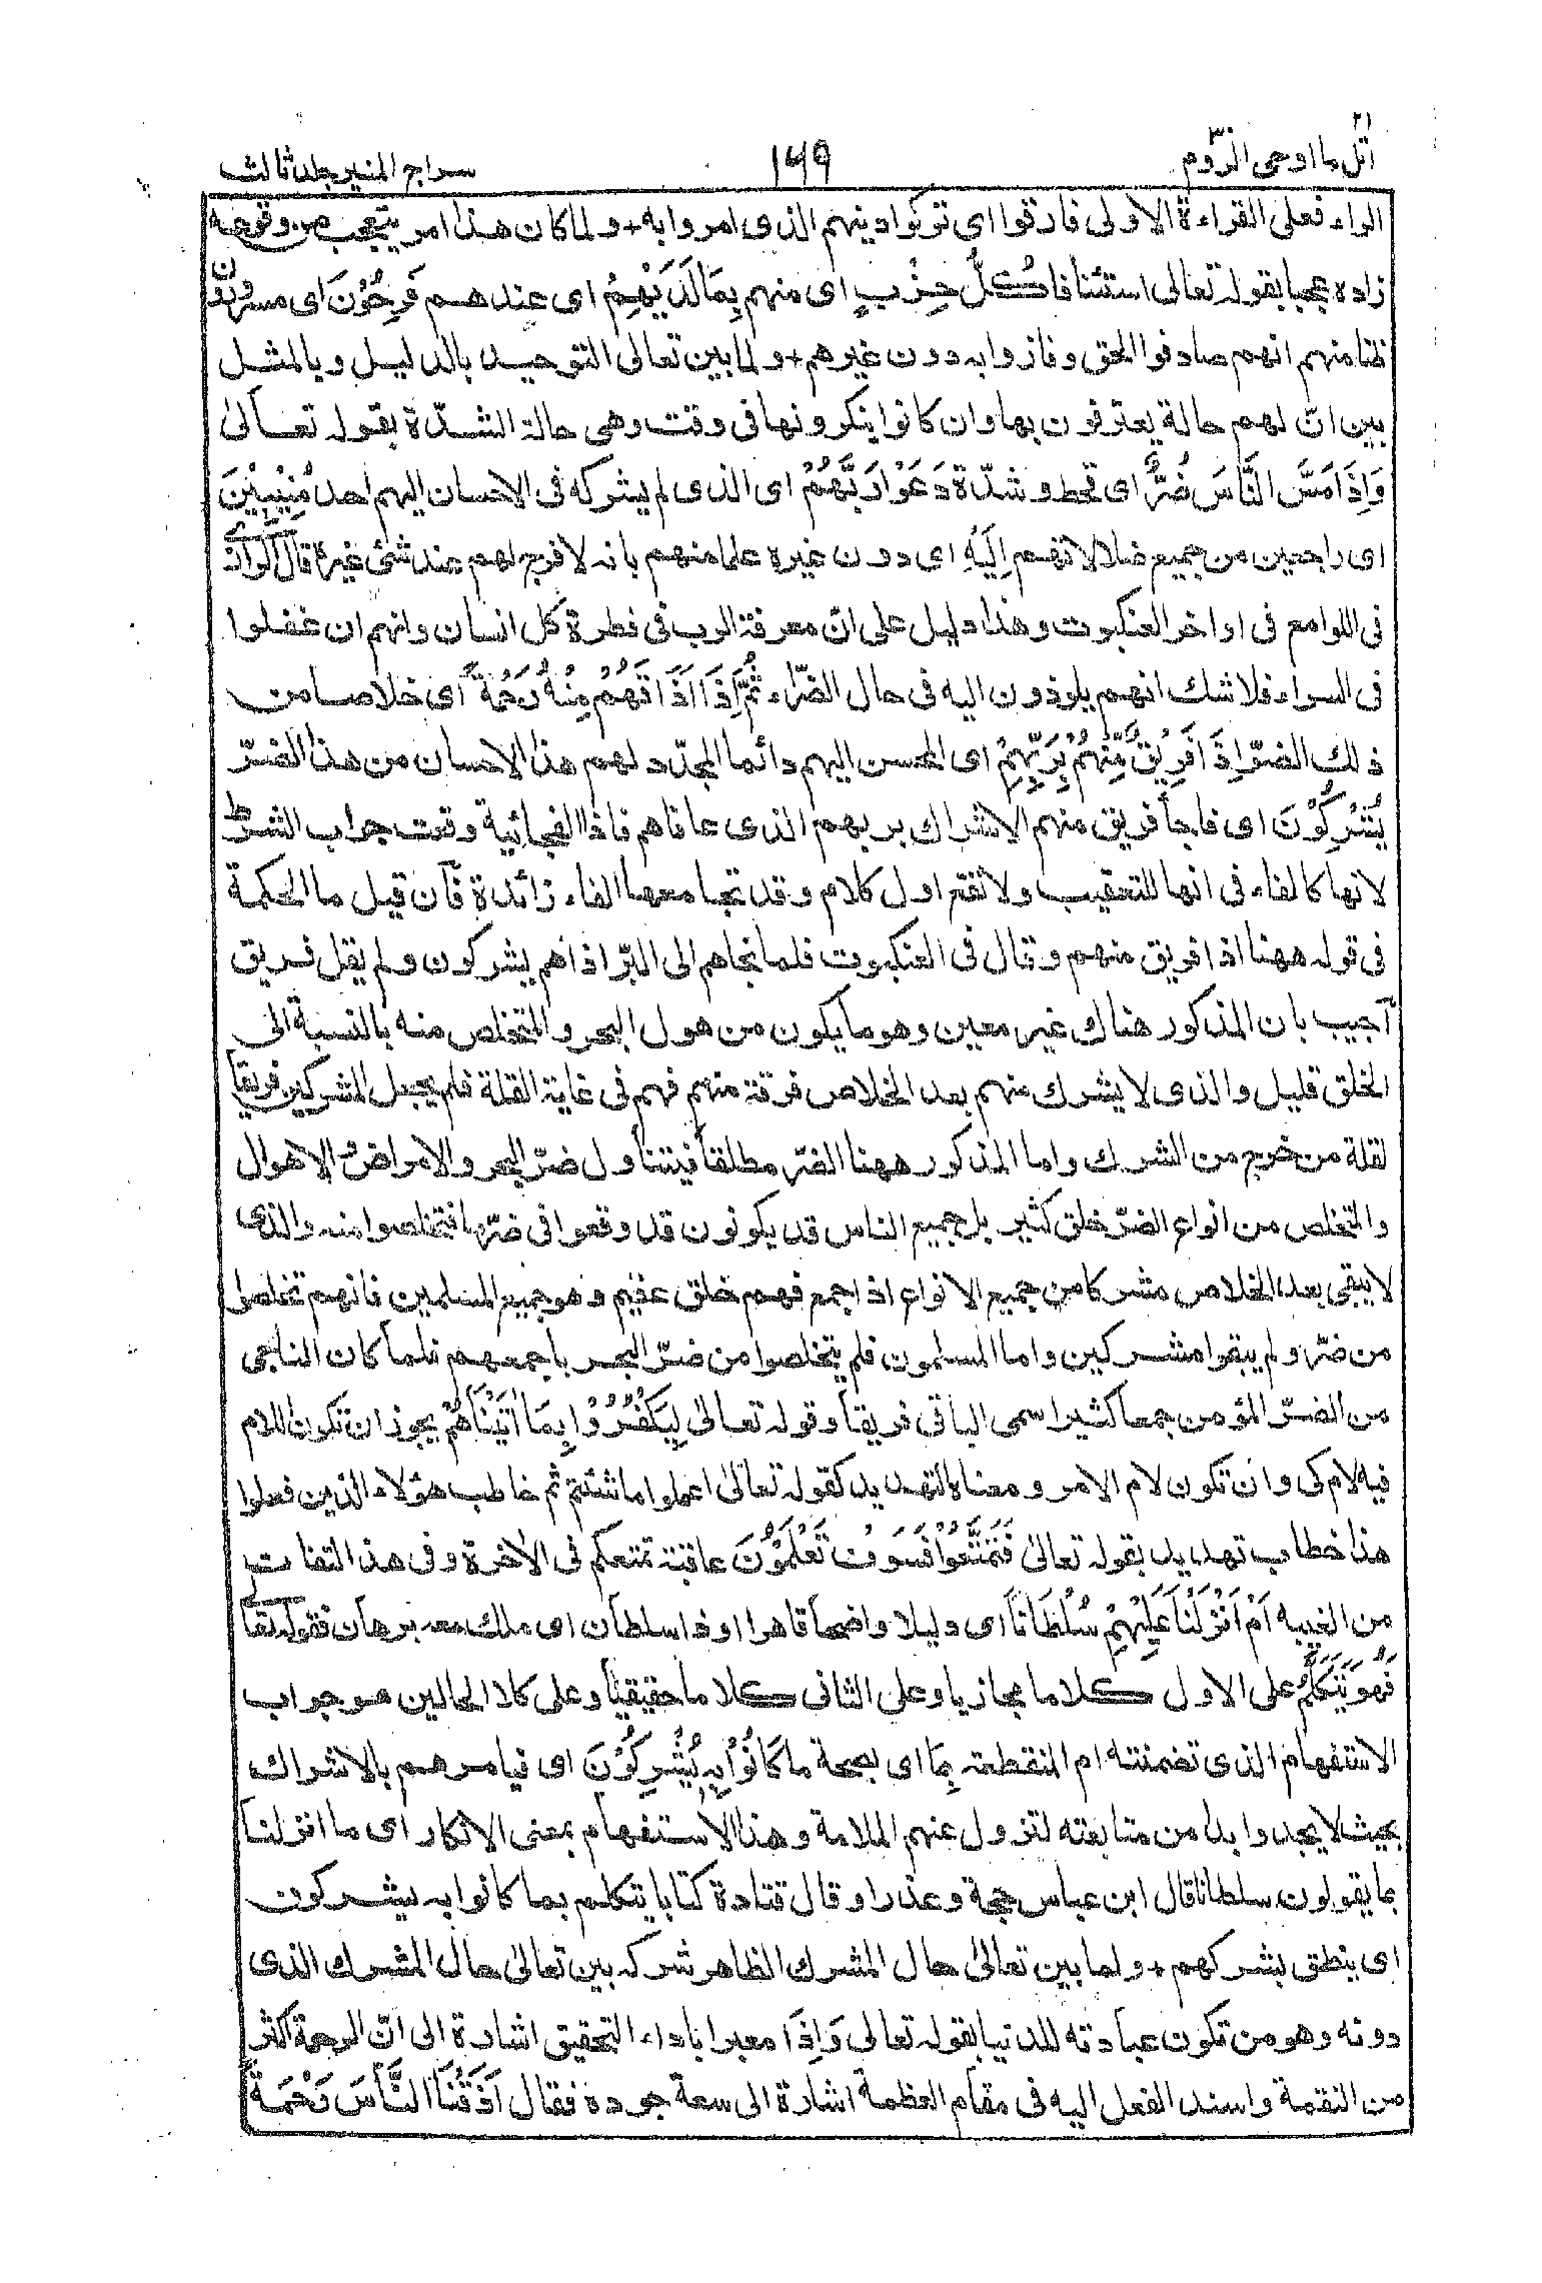 ٢١
اتل ما اوحى الرّوم ٣٠
١٦٩
سراج المنير جلد ثالث
الراء فعلى القراءة الاولى فارقوا اى تركوا دينهم الذى امروا به + ولما كان هذا امر يتعجب من وقوعه
زاده عجبا بقوله تعالى استئنافا كُلُّ حِزْبٍ اى منهم بِمَا لَدَيْهِمْ اى عندهم فَرِحُوْنَ اى مسرورون
ظنا منهم انهم صادفوا الحق وفازوا به دون غيرهم + ولما بين تعالى التوحيد بالدليل وبالمثل
بين انّ لهم حالة يعترفون بها وان كانوا ينكرونها فى وقت وهى حالة الشدّة بقوله تعالىٰ
وَاِذَا مَسَّ النَّاسَ ضُرٌّ اى قحط وشدّة دَعَوْا رَبَّهُمْ اى الذى لم يشركه فى الاحسان اليهم احد مُنِيْبِيْنَ
اى راجعين من جميع ضلالاتهم اِلَيْهِ اى دون غيره علما منهم بانه لا فرج لهم عند شئ غيره قال الرازى
فى اللوامع فى اواخر العنكبوت وهذا دليل على انّ معرفة الرب فى فطرة كل انسان وانهم ان غفلوا
فى السراء فلا شك انهم يلوذون اليه فى حال الضرّاء ثُمَّ اِذَا اَذَاقَهُمْ مِنْهُ رَحْمَةً اى خلاصا من
ذلك الضرّ اِذَا فَرِيْقٌ مِّنْهُمْ بِرَبِّهِمْ اى المحسن اليهم دائما المجدّد لهم هذا الاحسان من هذا الضرّ
يُشْرِكُوْنَ اى فاجأ فريق منهم الاشراك بربهم الذى عافاهم فاذا الفجائية وقعت جواب الشرط
لانها كالفاء فى انها للتعقيب ولا تقع اول كلام وقد تجامعها الفاء زائدة فآن قيل ما الحكمة
فى قوله ههنا اذا فريق منهم وقال فى العنكبوت فلما نجاهم الى البرّ اذا هم يشركون ولم يقل فريق
آجيب بان المذكور هناك غير معين وهو ما يكون من هول البحر والمتخلص منه بالنسبة الى
الخلق قليل والذى لا يشرك منهم بعد الخلاص فرقة منهم فهم فى غاية القلة فلم يجعل المشركين فريقا
لقلة من خرج من الشرك واما المذكور ههنا الضر مطلقا فيتناول ضرّ البحر والامراض والاهوال
والمتخلص من انواع الضرّ خلق كثير بل جميع الناس قد يكونون قد وقعوا فى ضرّما فتخلصوا منه والذى
لا يبقى بعد الخلاص مشركا من جميع الانواع اذا جمع فهم خلق عظيم وهو جميع المسلمين فانهم تخلصوا
من ضرّ ولم يبقوا مشركين واما المسلمون فلم يتخلصوا من ضرّ البحر باجمعهم فلما كان الناجى
من الضرّ المؤمن جمعا كثيرا سمى الباقى فريقا وقوله تعالىٰ لِيَكْفُرُوْا بِمَا اٰتَيْنَاهُمْ يجوز ان تكون اللام
فيه لام كى وان تكون لام الامر ومعناه التهديد كقوله تعالىٰ اعملوا ما شئتم ثم خاطب هؤلاء الذين فعلوا
هذا خطاب تهديد بقوله تعالىٰ فَتَمَتَّعُوْا فَسَوْفَ تَعْلَمُوْنَ عاقبة تمتعكم فى الآخرة وفى هذا التفات
من الغيبه اَمْ اَنْزَلْنَا عَلَيْهِمْ سُلْطَانًا اى دليلا واضحا قاهرا او ذا سلطان اى ملك معه برهان فقوله تعالى
فَهُوَ يَتَكَلَّمُ على الاول كلاما مجازيا وعلى الثانى كلاما حقيقيا وعلى كلا الحالين هو جواب
الاستفهام الذى تضمنته ام المنقطعة بِمَا اى بصحة ما كَانُوْا بِهٖ يُشْرِكُوْنَ اى فيامرهم بالاشراك
بحيث لا يجدوا بدا من متابعته لتزول عنهم الملامة وهذا الاستفهام بمعنى الانكار اى ما انزلنا
بما يقولون سلطانا قال ابن عباس حجة وعذرا وقال قتادة كتابا يتكلم بما كانوا به يشركون
اى ينطق بشركهم + ولما بين تعالىٰ حال المشرك الظاهر شركه بين تعالىٰ حال المشرك الذى
دونه وهو من تكون عبادته للدنيا بقوله تعالى وَاِذَا معبرا باداء التحقيق اشارة الى انّ الرحمة اكثر
من النقمة واسند الفعل اليه فى مقام العظمة اشارة الى سعة جوده فقال اَذَقْنَا النَّاسَ رَحْمَةً